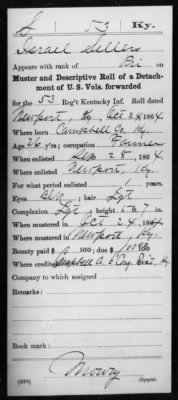 S 53 Ky.
Israel Sellers
Appears with rank of Pri on
Muster and Descriptive Roll of a Detach-
ment of U. S. Vols. forwarded
for the 53 Reg't Kentucky Inf. Roll dated
Newport, Ky. Oct 24, 1864
Where born Campbell Co. Ky.
Age 26 y'rs; occupation Farmer
When enlisted Sep 28, 1864
Where enlisted Newport, Ky.
For what period enlisted years.
Eyes Blu; hair Lgt
Complexion Lgt; height 5 ft. 7 in.
When mustered in Oct 24, 1864
Where mustered in Newport, Ky.
Bounty paid $ 100; due $ 100
Where credited Campbell Co. 6 Cong. Dist. Ky.
Company to which assigned
Remarks:
Book mark:
Mowry
(339) Copyist.